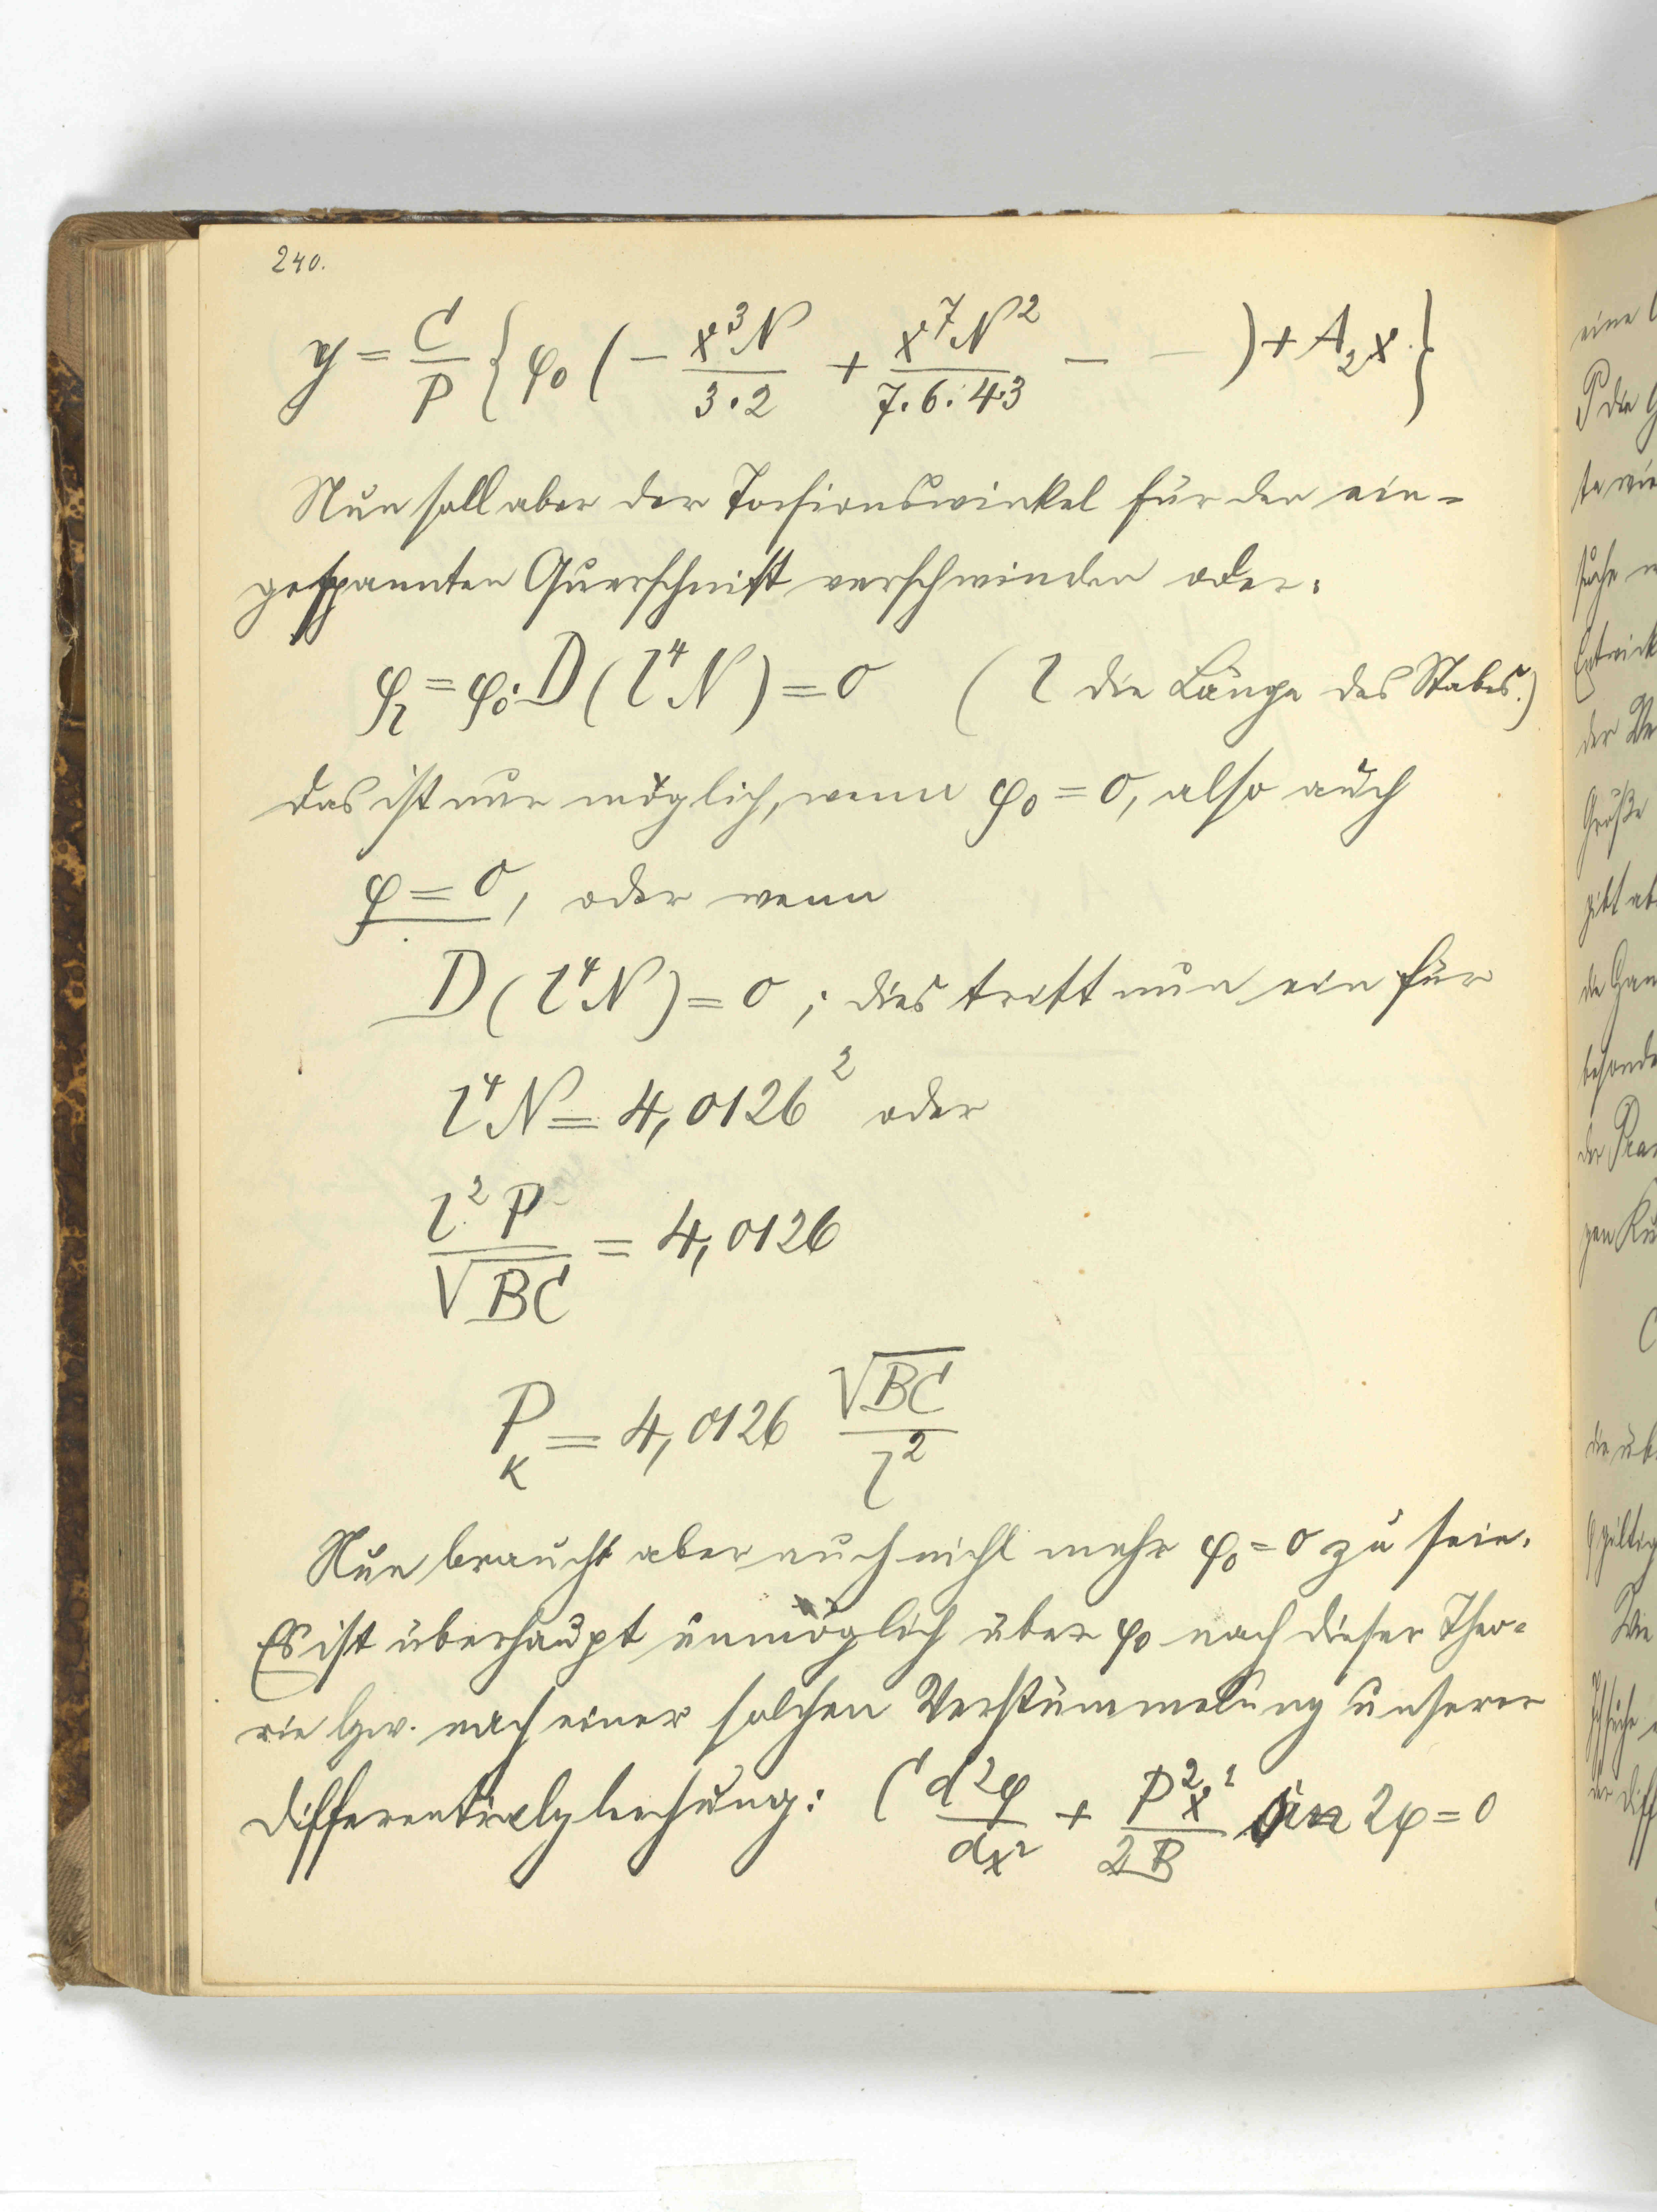 240.
y = C/P { φ₀ ( − x³N/3·2 + x⁷N²/7·6·4·3 − − ) + A₂x }
Nun soll aber der Torsionswinkel für den ein-
gespannten Querschnitt verschwinden oder:
φ_l = φ₀·D(l⁴N) = 0 ( l die Länge des Stabes.)
das ist nur möglich, wenn φ₀ = 0, also auch
φ = 0, oder wenn
D(l⁴N) = 0 ; dies tritt nun ein für
l⁴N = 4,0126² oder
l²P/√BC = 4,0126
P_K = 4,0126 √BC/l²
Nun braucht aber auch nicht mehr φ₀ = 0 zu sein.
Es ist überhaupt unmöglich über φ₀ nach dieser Theo-
rie bzw. nach einer solchen Verstümmelung unserer
Differentialgleichung: C d²φ/dx² + P²x²/2B sin 2φ = 0
eine
P die
suche
Entwick
der
Größe
gibt
besonde
der
die üb
giltig
Wie